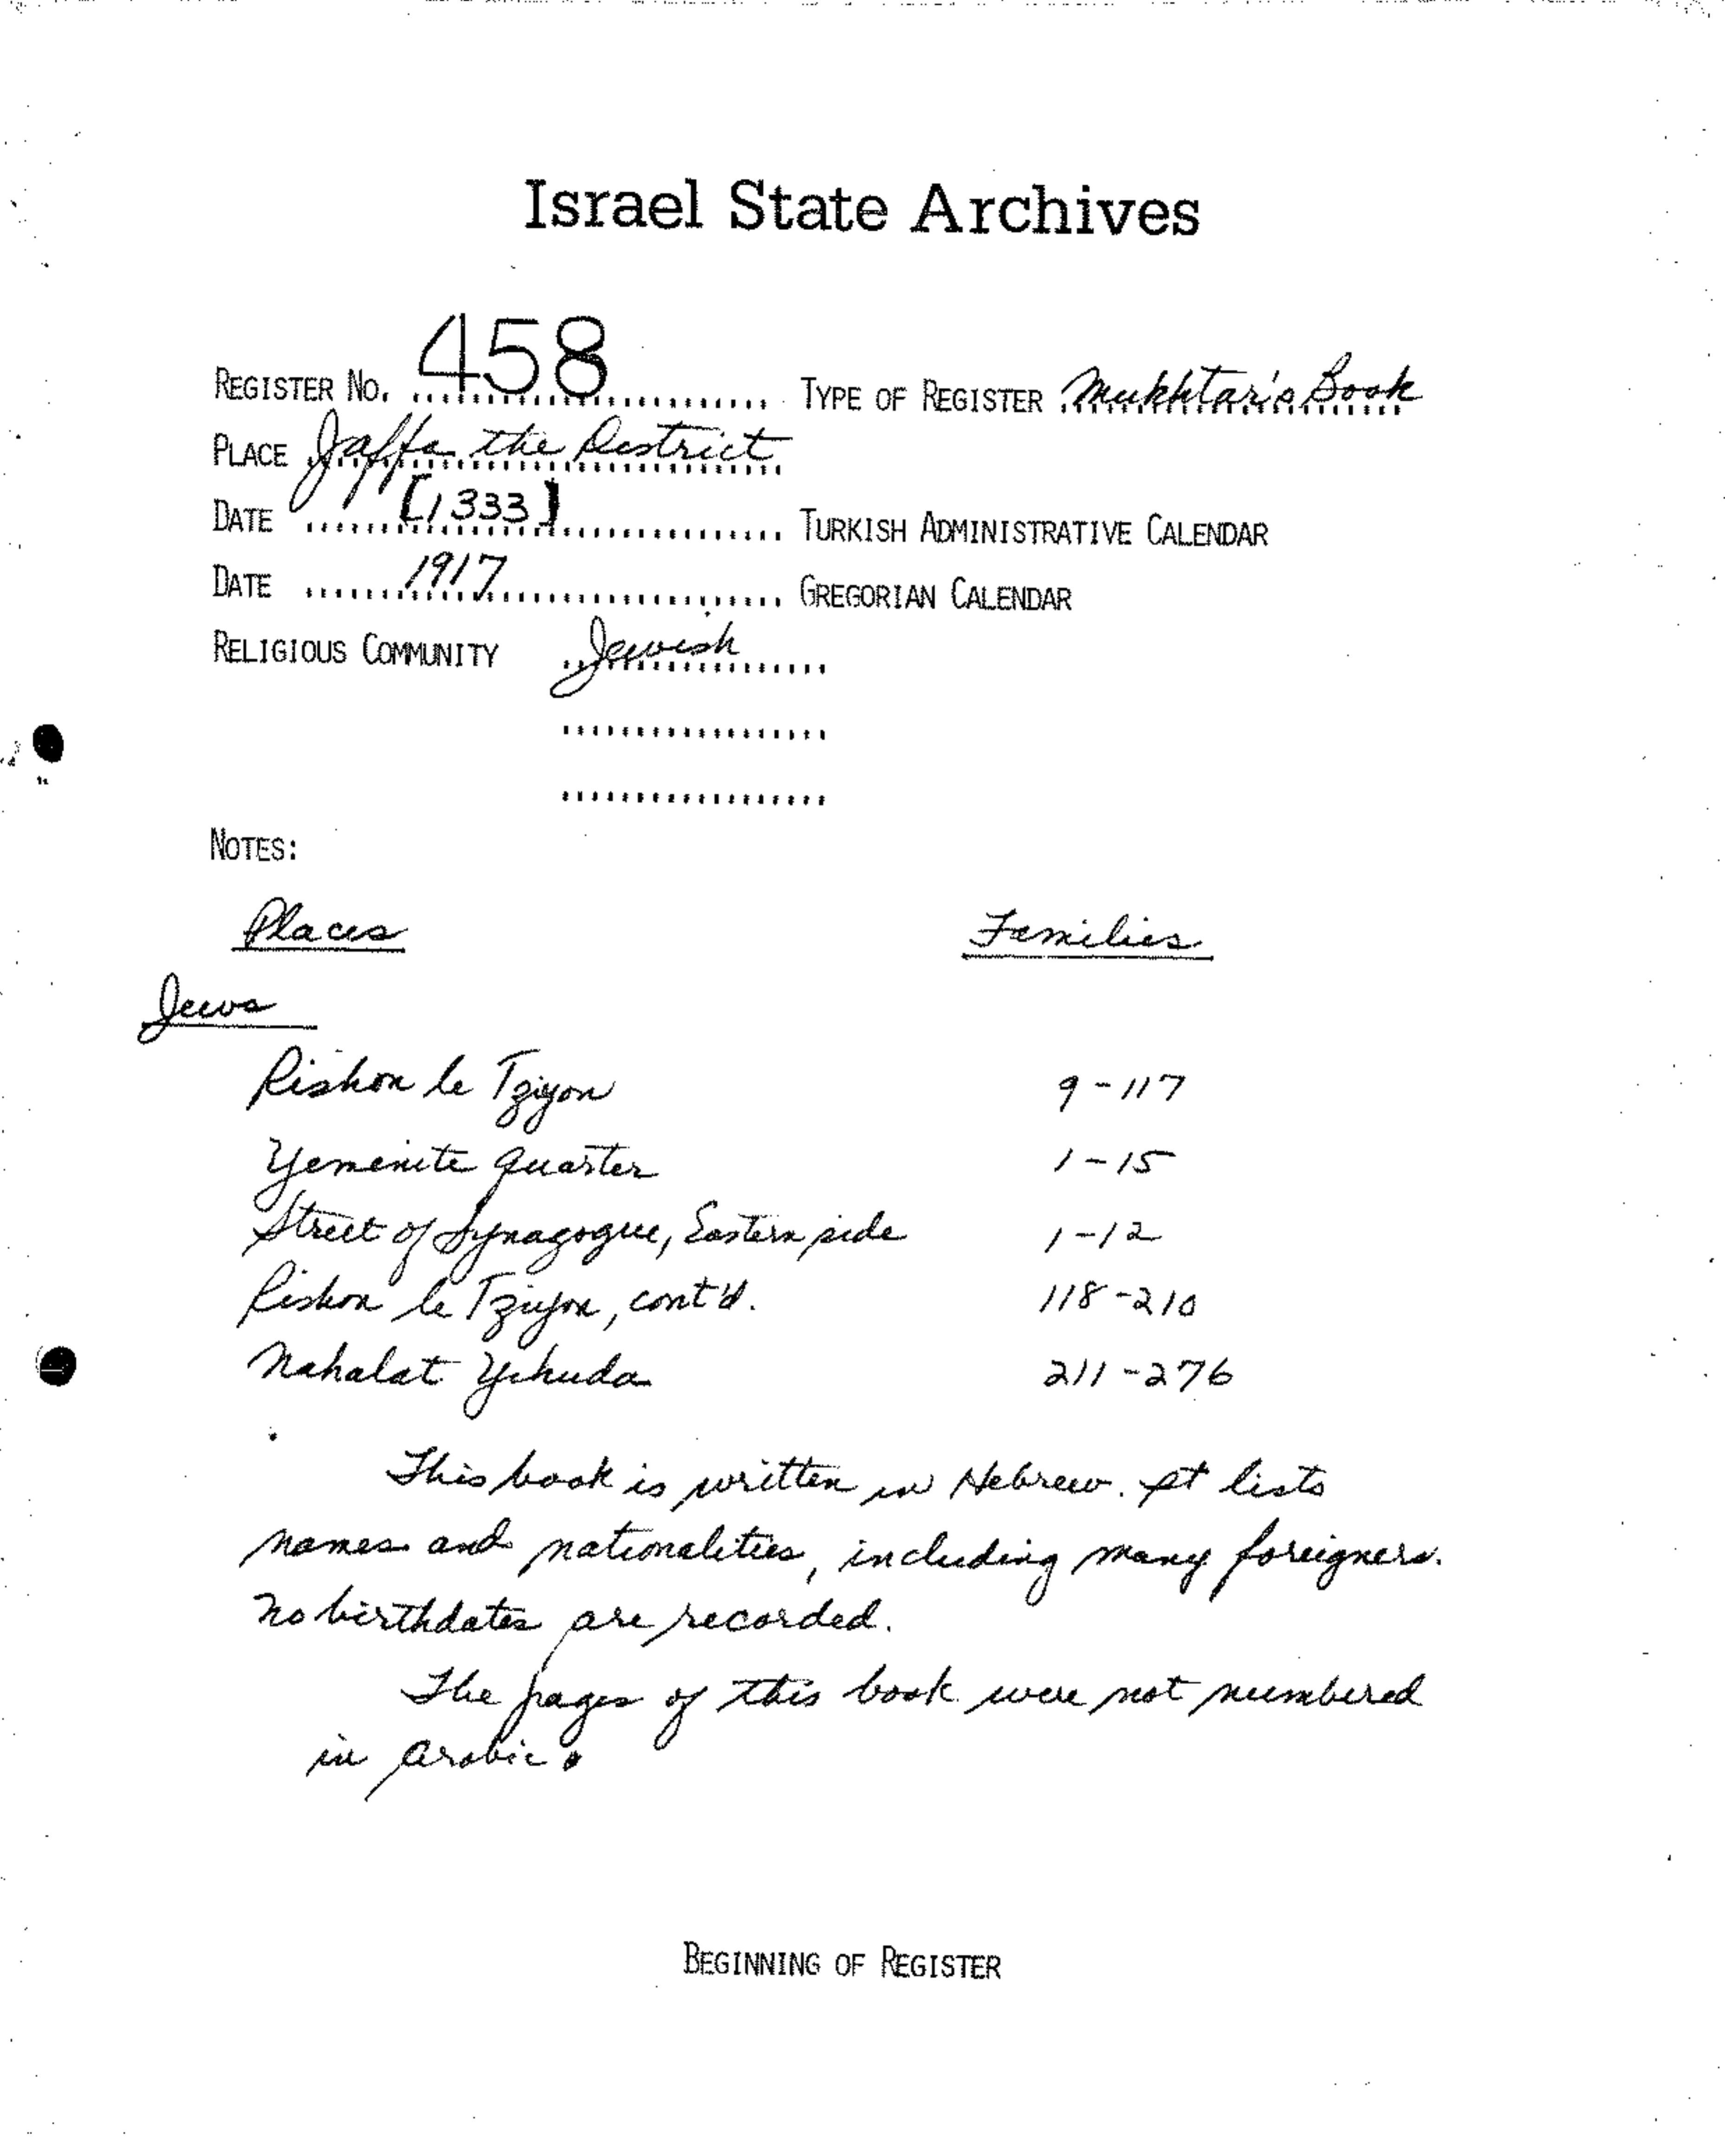 Israel State Archives
REGISTER NO. 458 TYPE OF REGISTER Mukhtar's Book
PLACE Jaffa the District
DATE [1333] TURKISH ADMINISTRATIVE CALENDAR
DATE 1917 GREGORIAN CALENDAR
RELIGIOUS COMMUNITY Jewish
NOTES:
Places Families
Jews
Rishon le Tziyon 9-117
Yemenite Quarter 1-15
Street of Synagogue, Eastern side 1-12
Rishon le Tziyon, cont'd. 118-210
Nahalat Yehuda 211-276
This book is written in Hebrew. It lists
names and nationalities, including many foreigners.
No birthdates are recorded.
The pages of this book were not numbered
in Arabic.
BEGINNING OF REGISTER